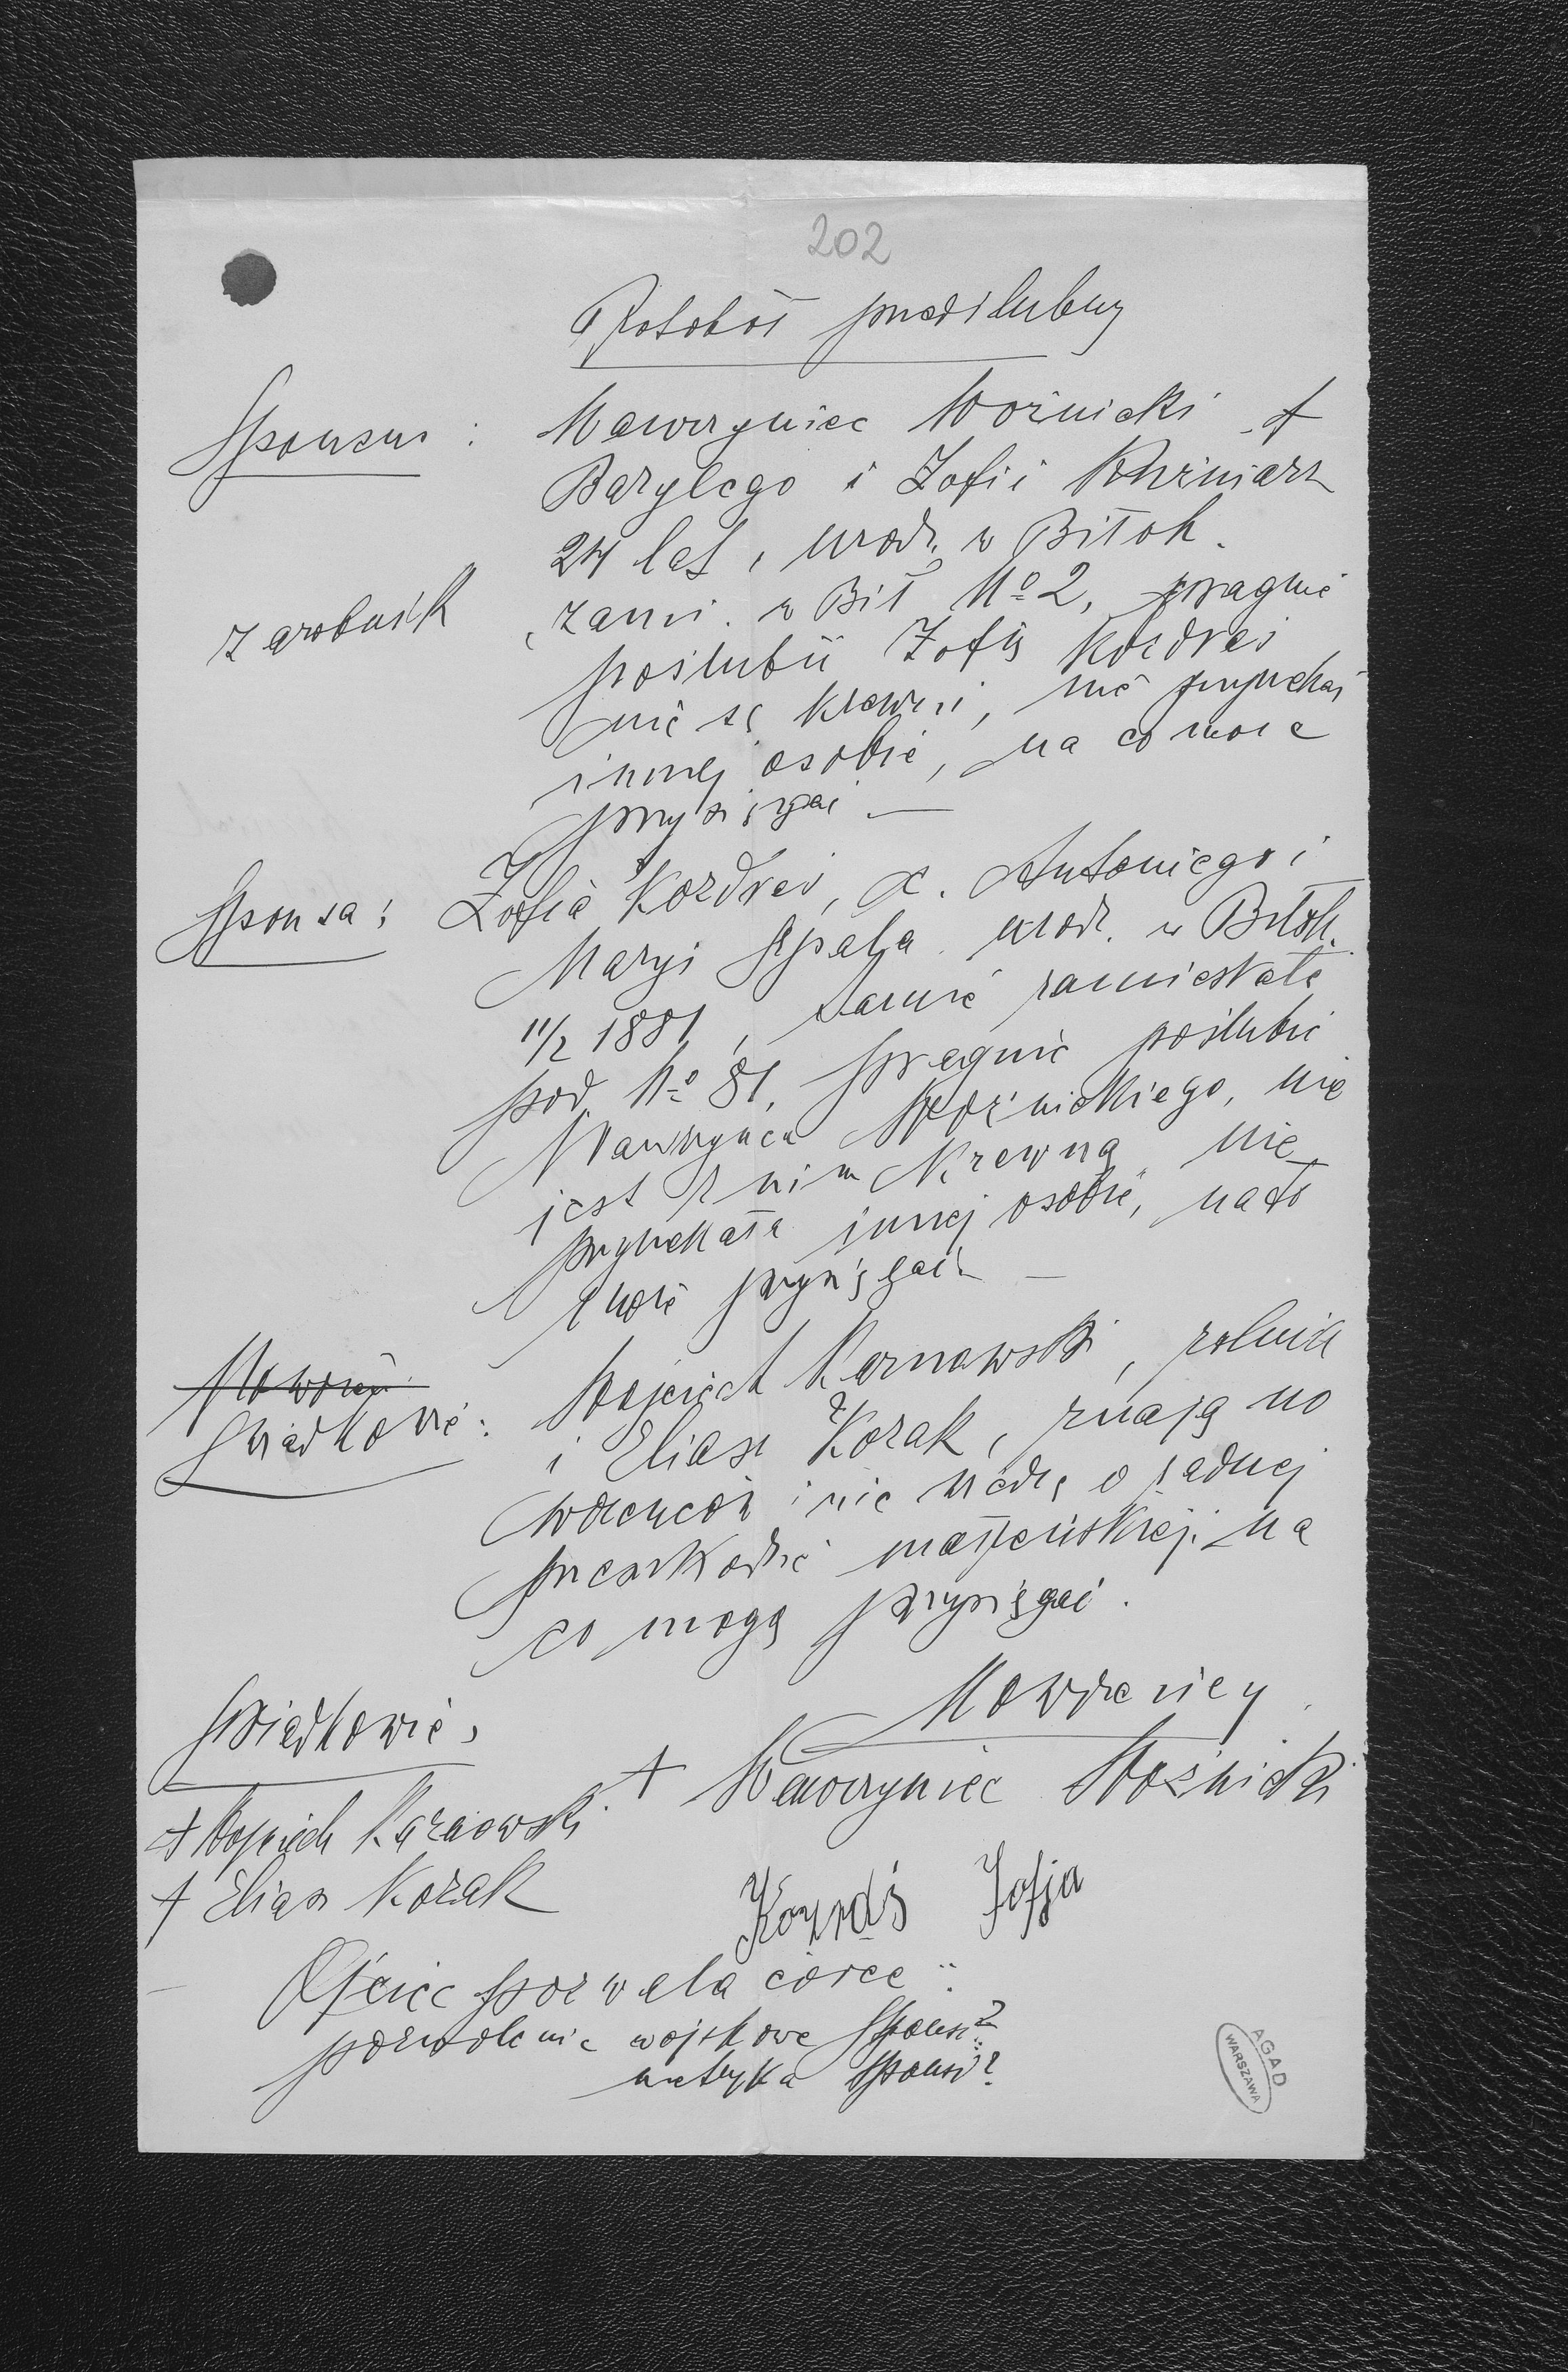 202
Protokół przedślubny
Sponsus : Wawrzyniec Woźnicki s.
Bazylego i Zofii Kuźniarz
24 lat, urodz. w Biłoh.
zarobnik zam. w Bił Nº 2, pragnie
poślubić Zofię Kozdraś
nie są krewni, nie przyrzekał
innej osobie, na co może
przysięgać —
Sponsa : Zofia Kozdraś, c. Antoniego i
Maryi Spała urodz. w Biłoh.
11/2 1881, tamże zamieszkała
pod Nº 81, pragnie poślubić
Wawrzyńca Woźnickiego, nie
jest z nim krewną, nie
przyrzekała innej osobie, na to
może przysięgać —
Świadkowie : Wojciech Karnawski, rolnik
i Eliasz Kozak, znają no
wożeńców i nie wiedzą o żadnej
przeszkodzie małżeńskiej, na
co mogą przysięgać.
Świadkowie, Nowożeńcy
+ Wawrzyniec Woźnicki
+ Wojciech Karnawski
+ Eliasz Kozak Kozdraś Zofja
Ojciec pozwala córce
pozwolenie wojskowe Sponsi?
metryka Sponsi?
AGAD
WARSZAWA